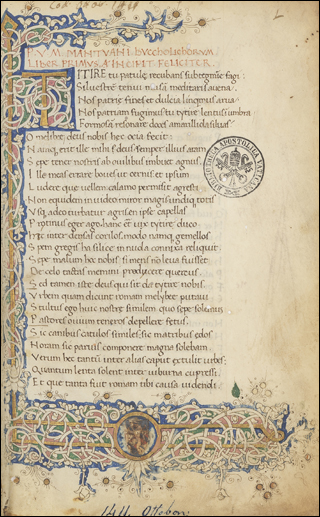 P. V. M. MANTVANI BVCCHOLICHORVM
LIBER PRIMVS INCIPIT FELICITER
TITIRE tu patulę recubans sub tegmine fagi
Silvestrē tenui musā meditaris avena
Nos patrię fines et dulcia linquimus arva
Nos patriam fugimus tu tytire lentus sumbra
Formosā resonare doces amarillida silvas
O melibee deus nobis hec ocia fecit
Namq; erit ille mihi semper deus illius aram
Sepe tener nostris ab ovilibus imbuet agnus
Ille meas errare boves ut cernis et ipsum
Ludere que vellem calamo permisit agresti
Non equidem invideo miror magis undiq; totis
Vsq; adeo turbatur agris en ipse capellas
Protinus eger ago hanc et vix tytire duco
Hęc inter densas corilos modo namq; gemellos
Spem gregis ha silice in nuda conixa reliquit
Sepe malum hec nobis si mens nō leva fuisset
De celo tactas memini predicere quercus
Sed tamen iste deus qui sit da tytire nobis
Vrbem quam dicunt romam melibee putavi
Stultus ego huic nostrę similem quo sepe solemus
Pastores ovium teneros depellere fetus
Sic canibus catulos similes sic matribus edos
Noram sic parvis componere magna solebam
Verum hec tantū inter alias caput extulit urbes
Quantum lenta solent inter viburna cupressi
Et que tanta fuit romam tibi causa videndi
BIBLIOTECA APOSTOLICA VATICANA
1411 Ottobon